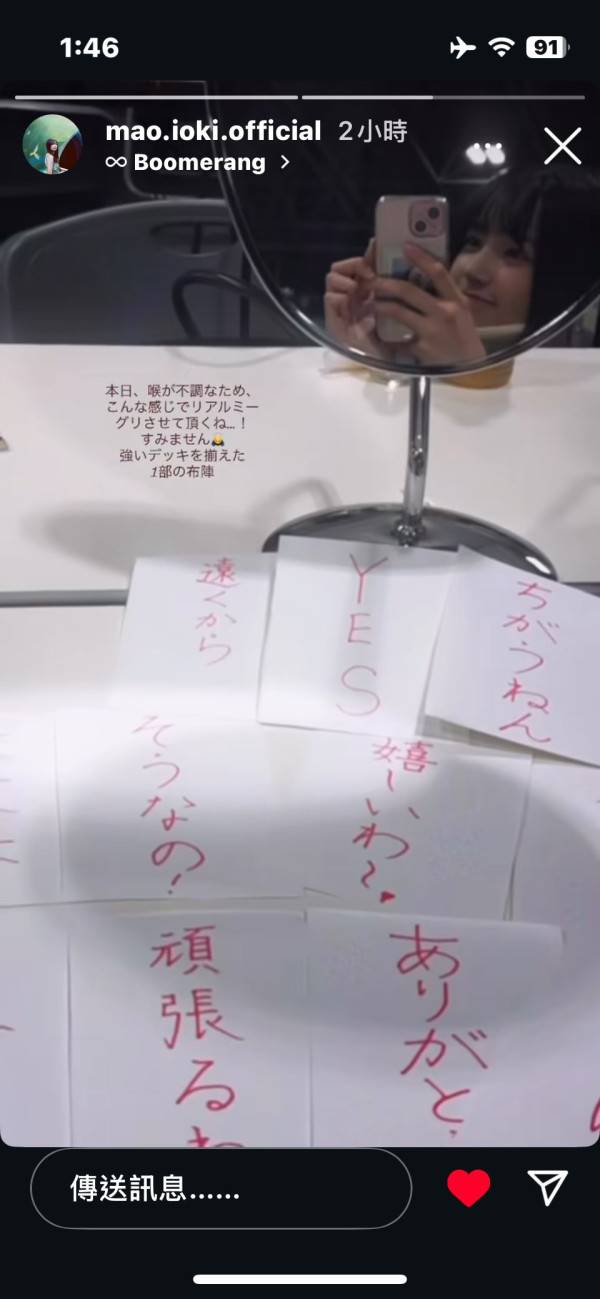 1:46
91
mao.ioki.official 2小時
∞ Boomerang >
本日、喉が不調なため、
こんな感じでリアルミー
グリさせて頂くね...！
すみません🙇
強いデッキを揃えた
1部の布陣
遠くから
YES
ちがうねん
そうなの！
嬉しいわ〜♥
頑張るね
ありがと
傳送訊息......